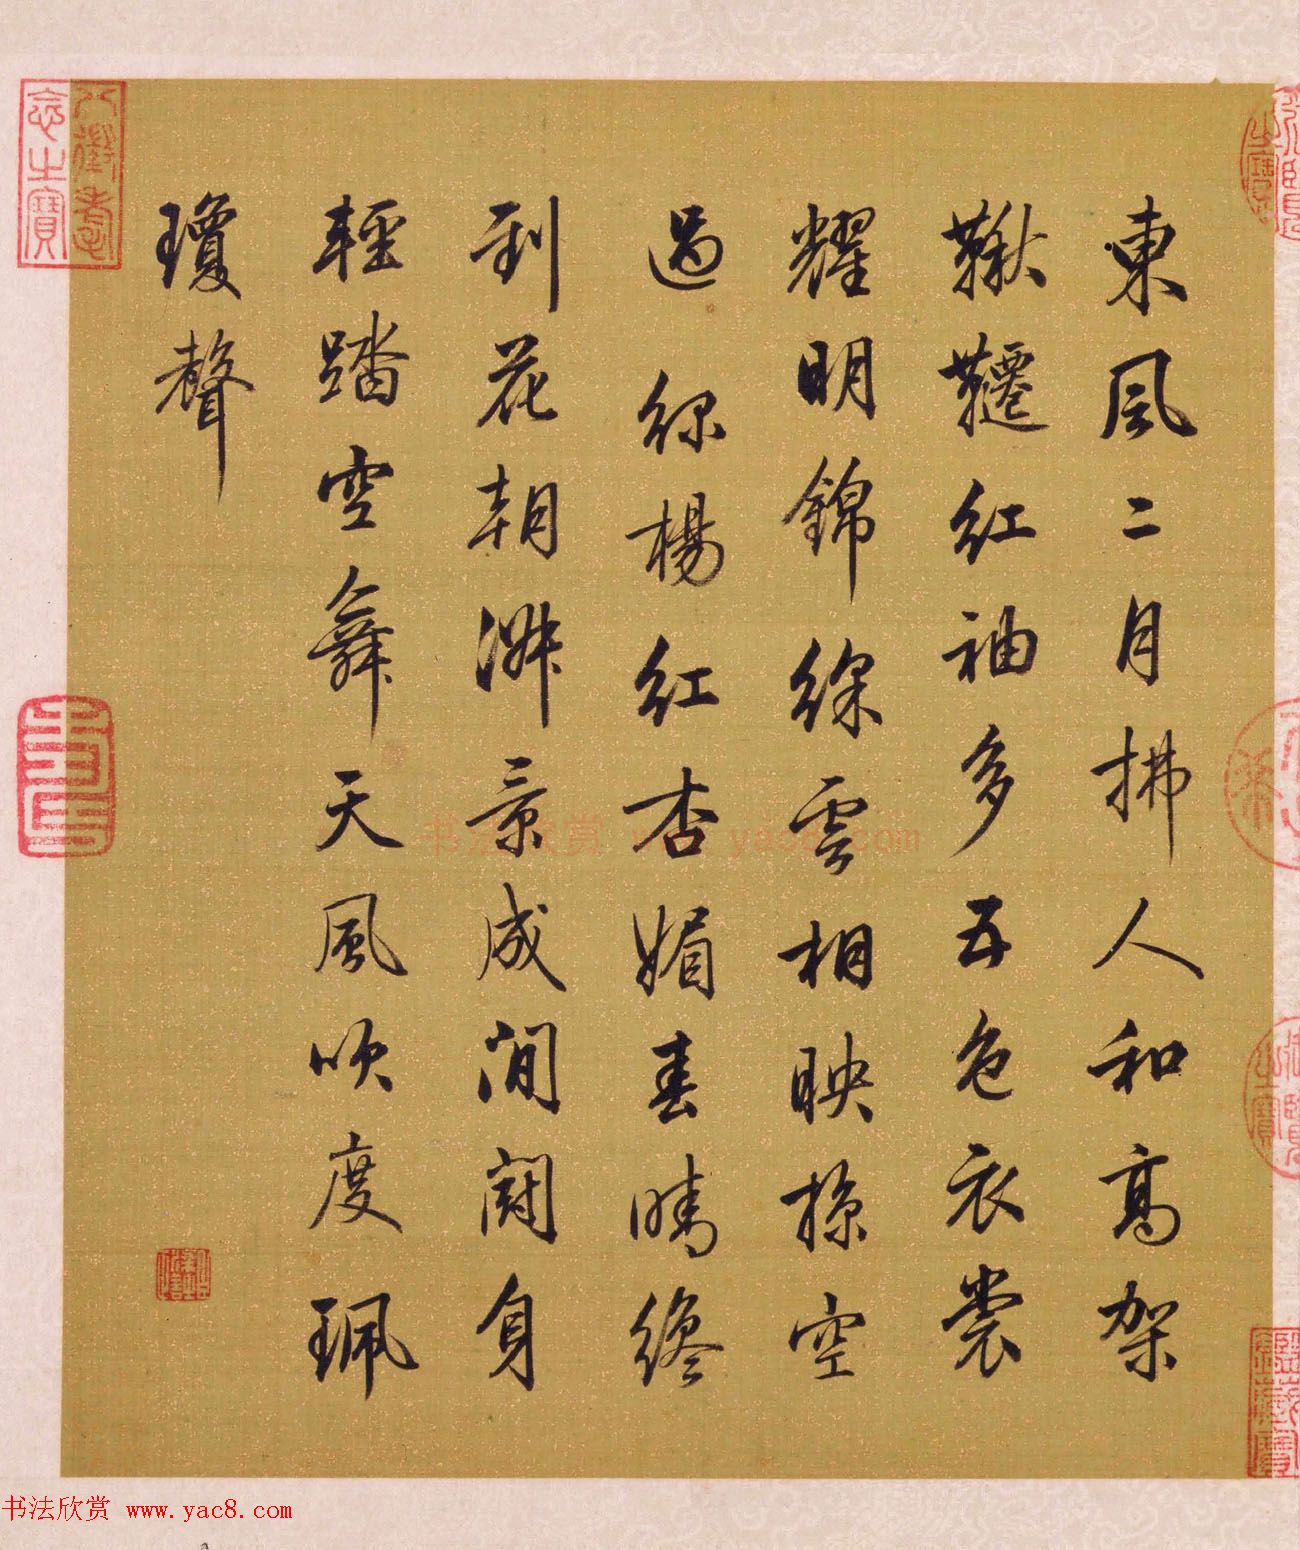 東風二月拂人和高架
鞦韆紅袖多五色衣裳
耀明錦綵雲相映掠空
過綠楊紅杏媚春晴纔
到花朝淑景成閒鬪身
輕踏空舞天風吹度珮
瓊聲
八徵耄
念之寶
书法欣赏 www.yac8.com
书法欣赏 www.yac8.com